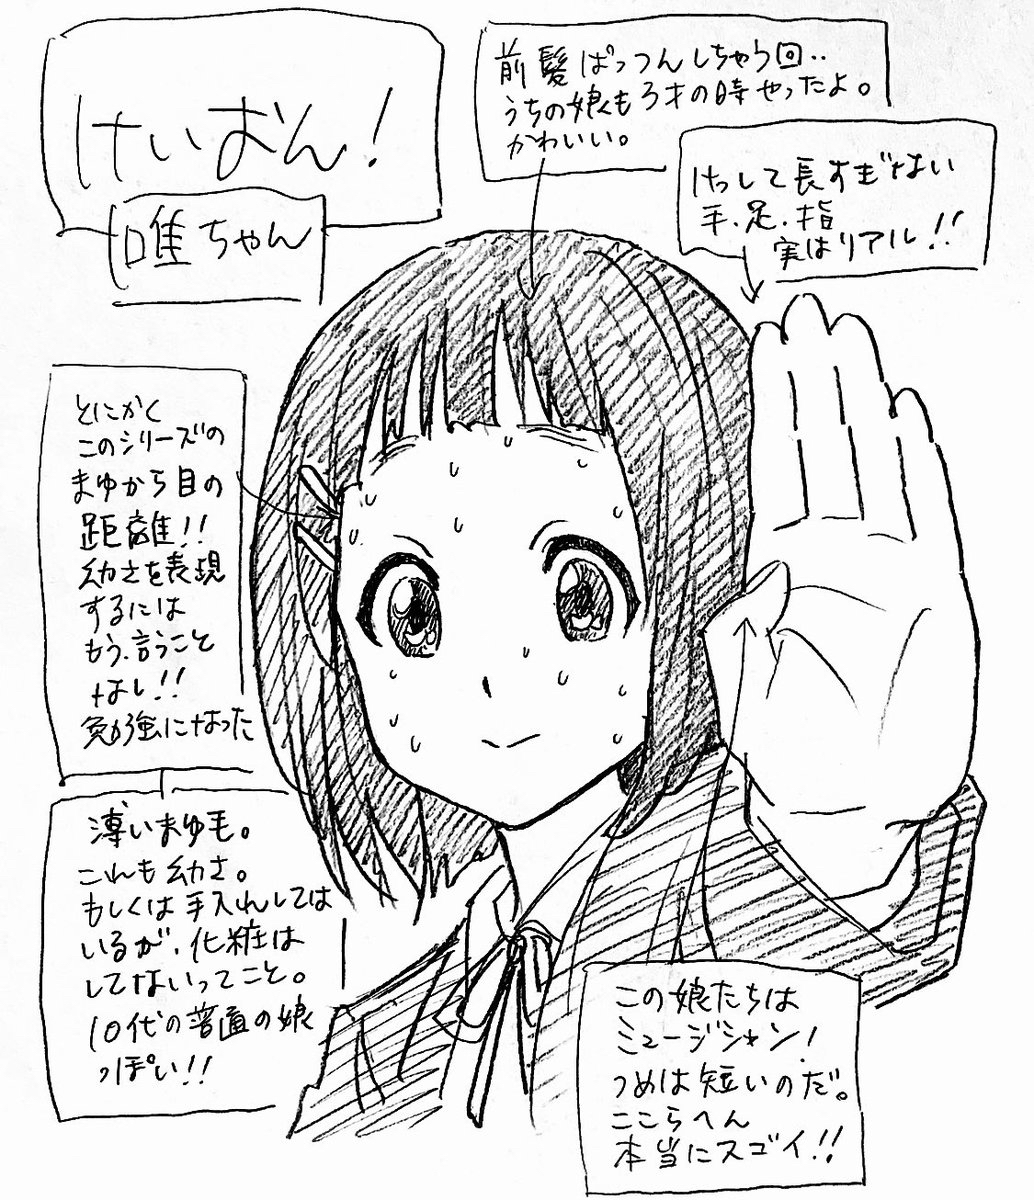 けいおん!
唯ちゃん
前髪ぱっつんしちゃう回..
うちの娘も3才の時やったよ。
かわいい。
けっして長すぎない
手.足.指
実はリアル!!
とにかく
このシリーズの
まゆから目の
距離!!
幼さを表現
するには
もう.言うこと
なし!!
勉強になった
薄いまゆ毛。
これも幼さ。
もしくは手入れしては
いるが、化粧は
してないってこと。
10代の普通の娘
っぽい!!
この娘たちは
ミュージシャン!
つめは短いのだ。
ここらへん
本当にスゴイ!!